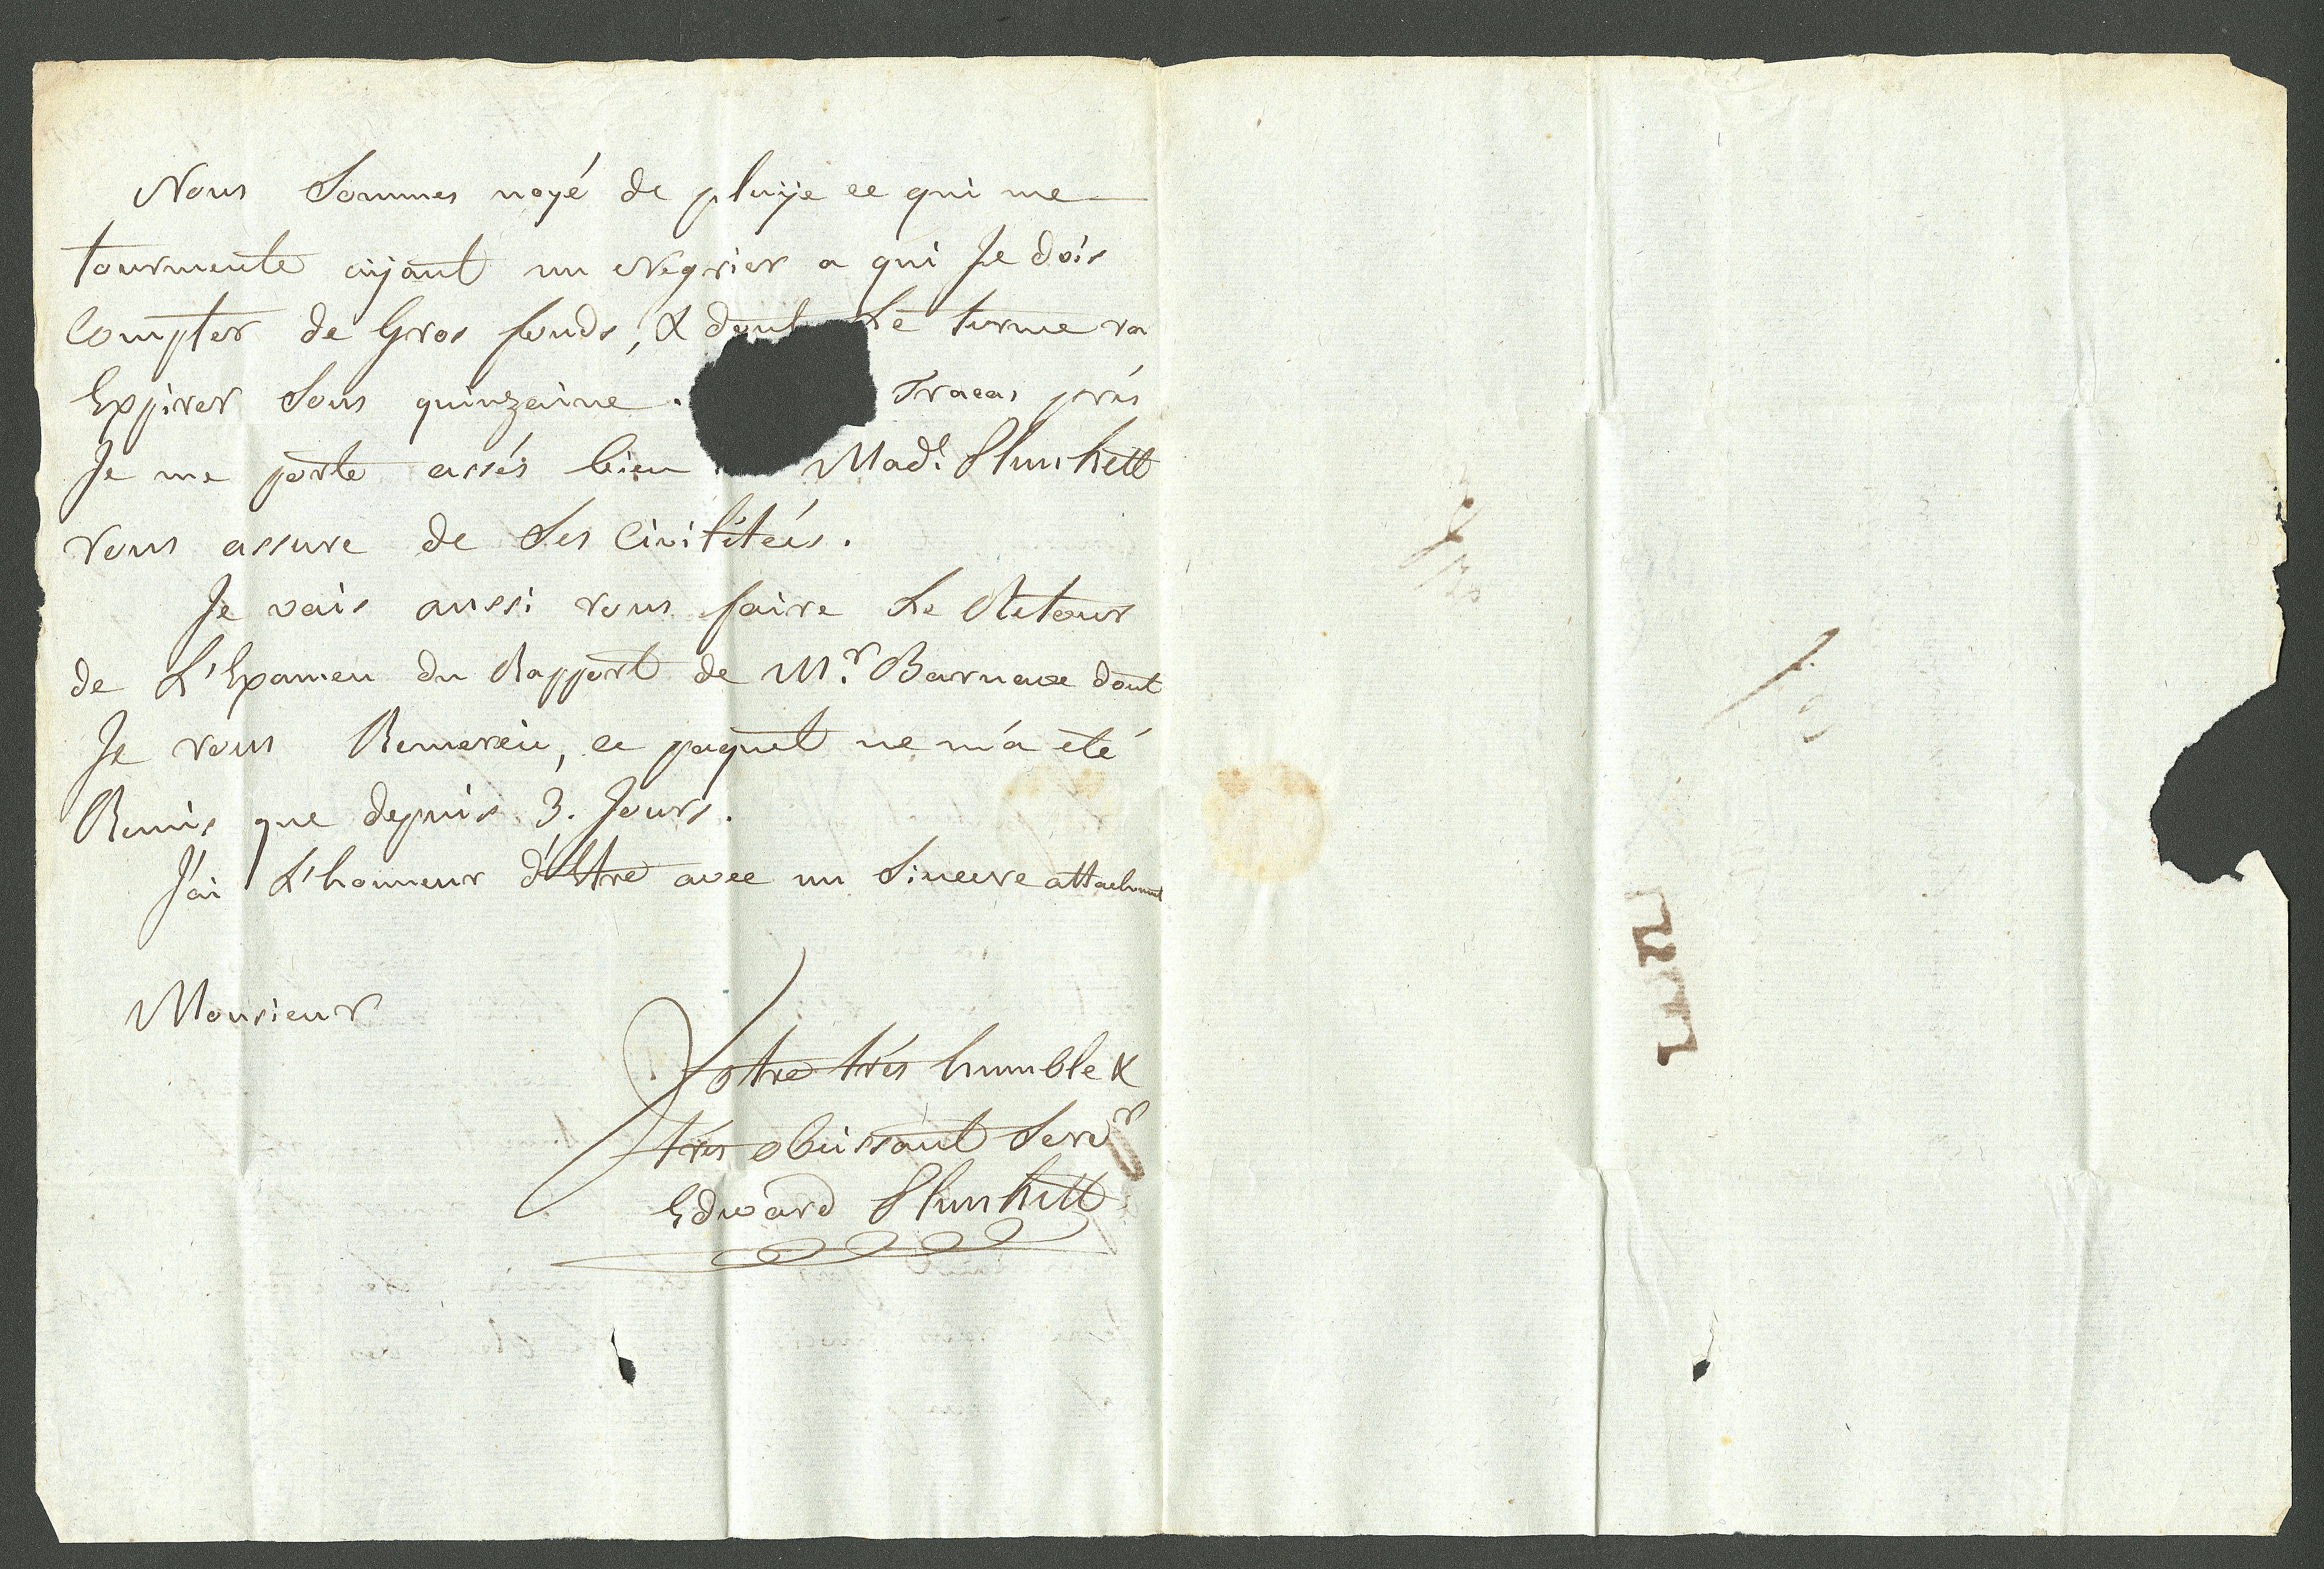 Nous Sommes noyé de pluije ce qui me
tourmente aijant un Negrier a qui Je dois
Compter de Gros fonds, & dont Le terme va
Expirer Sous quinzaine. Tracas prés
Je me porte assés bien Mad.e Plunkett
vous assure de Ses Civilitées.
Je vais aussi vous faire Le Retour
de L'Examen du Rapport de M.r Barnave dont
Je vous Remercie, ce paquet ne m'a été
Remis que depuis 3. Jours.
J'ai L'honneur d'Etre avec un Sincere attachment
Monsieur
Votre trés humble &
trés obéissant Serv.r
Edward Plunkett